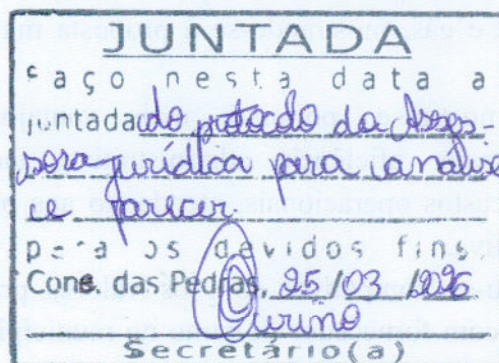 JUNTADA
Faço nesta data a
juntada do protocolo da Asses
sora jurídica para análise
e parecer
para os devidos fins
Conc. das Pedras, 25/03/2026
Secretário(a)